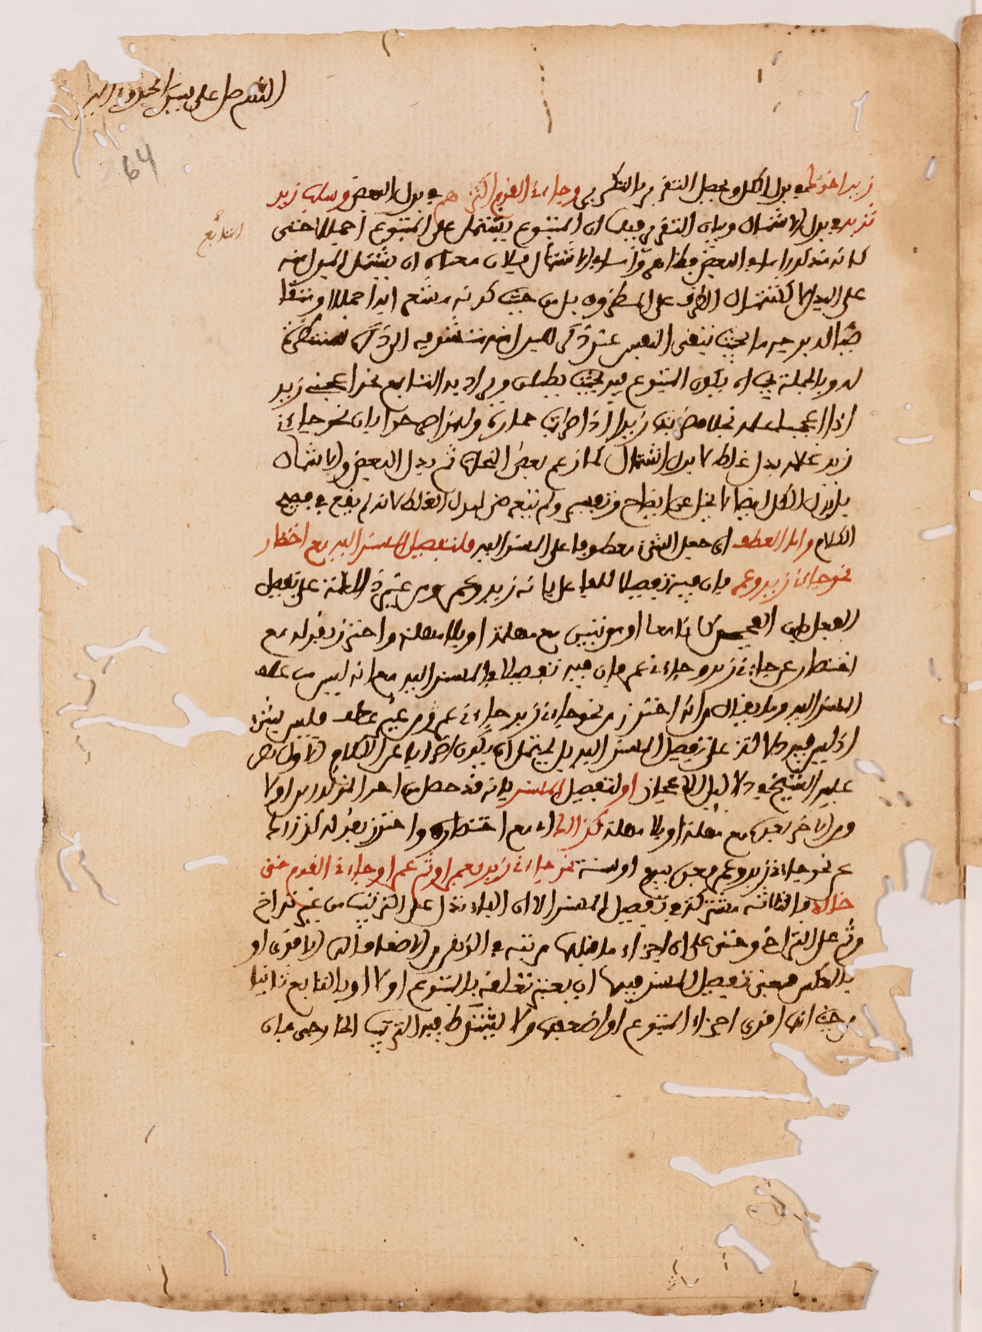 اللهم صل على سيدنا محمد وآله
64
زيد اخوك في بدل الكل ويحصل التقرير بالتكرير وجاءني القوم اكثرهم في بدل البعض وسلب زيد
ثوبه في بدل الاشتمال وبيان التقرير فيهما ان المتبوع يشتمل على التابع اجمالا حتى
التابع
كانه مذكور اما في البعض فظاهر واما في الاشتمال فلان معناه ان يشتمل المبدل منه
على البدل لا كاشتمال الظرف على المظروف بل من حيث كونه مشعرا به اجمالا ومتقاضيا
له بوجه ما بحيث تبقى النفس عند ذكر المبدل منه متشوقة الى ذكره منتظرة
له وبالجملة يجب ان يكون المتبوع فيه بحيث يطلق ويراد به التابع نحو اعجبني زيد
اذا اعجبك علمه بخلاف ضربت زيدا اذا ضربت حماره ولهذا صرحوا بان نحو جاءني
زيد غلامه بدل غلط لا بدل اشتمال كما زعم بعض النحاة ثم بدل البعض والاشتمال
بل بدل الكل ايضا لا يخلو عن ايضاح وتفسير ولم يتعرض لبدل الغلط لانه لا يقع في فصيح
الكلام واما العطف اي جعل الشيء معطوفا على المسند اليه فلتفصيل المسند اليه مع اختصار
نحو جاءني زيد وعمرو فان فيه تفصيلا للفاعل بانه زيد وعمرو من غير دلالة على تفصيل
الفعل بان المجيئين كانا معا او مرتبين مع مهلة او بلا مهلة واحترز بقوله مع
اختصار عن جاءني زيد وجاءني عمرو فان فيه تفصيلا للمسند اليه مع انه ليس من عطف
المسند اليه وما يقال من انه احتراز من نحو جاءني زيد جاءني عمرو من غير عطف فليس بشيء
اذ ليس فيه دلالة على تفصيل المسند اليه بل يحتمل ان يكون اضرابا عن الكلام الاول نص
عليه الشيخ في دلائل الاعجاز او لتفصيل المسند بانه قد حصل من احد المذكورين اولا
ومن الآخر بعده مع مهلة او بلا مهلة كذلك اي مع اختصار واحترز بقوله كذلك
عن نحو جاءني زيد وعمرو بعده بيوم او سنة نحو جاءني زيد فعمرو او ثم عمرو او جاءني القوم حتى
خالد فالثلاثة مشتركة في تفصيل المسند الا ان الفاء تدل على الترتيب من غير تراخ
وثم على التراخي وحتى على ان اجزاء ما قبلها مرتبة في الذهن من الاضعف الى الاقوى او
بالعكس فمعنى تفصيل المسند فيها ان يعتبر تعلقه بالمتبوع اولا وبالتابع ثانيا
من حيث انه اقوى اجزاء المتبوع او اضعفها ولا يشترط فيها الترتيب الخارجي فان